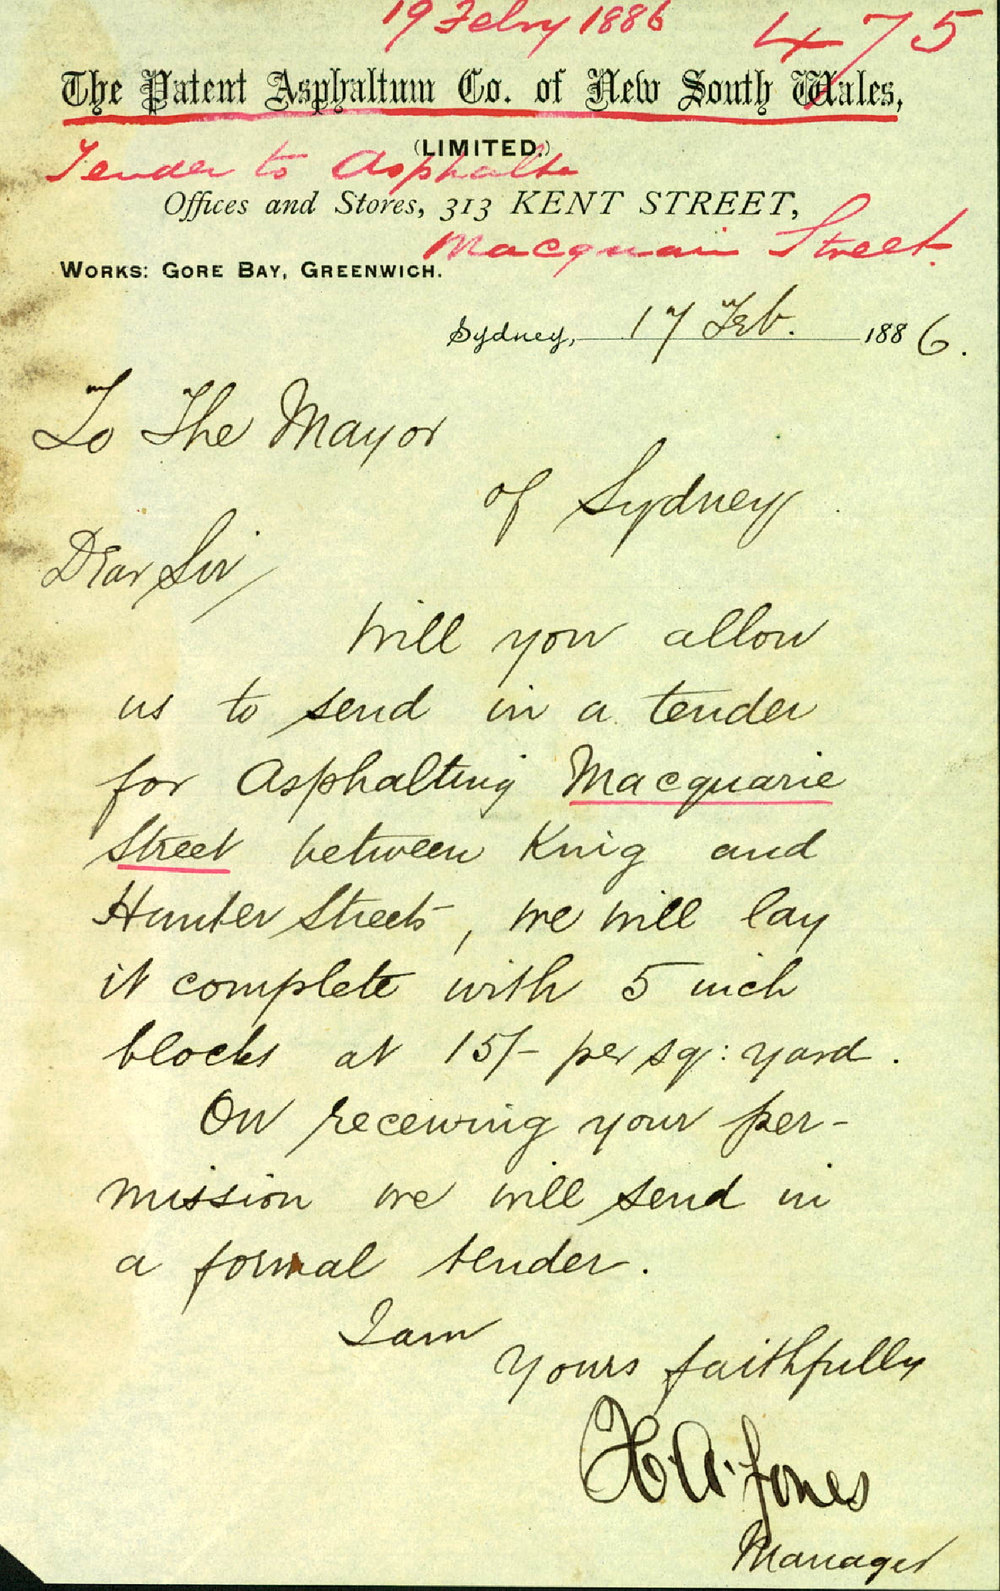 19 Febry 1886
475
The Patent Asphaltum Co. of New South Wales,
(LIMITED.)
Tender to Asphalte
Offices and Stores, 313 KENT STREET,
Macquarie Street.
WORKS: GORE BAY, GREENWICH.
Sydney, 17 Feb. 1886.
To The Mayor
of Sydney
Dear Sir,
Will you allow
us to send in a tender
for Asphalting Macquarie
Street between King and
Hunter Streets, we will lay
it complete with 5 inch
blocks at 15/- per sq: yard.
On receiving your per-
mission we will send in
a formal tender.
I am
Yours faithfully
H. A. Jones
Manager